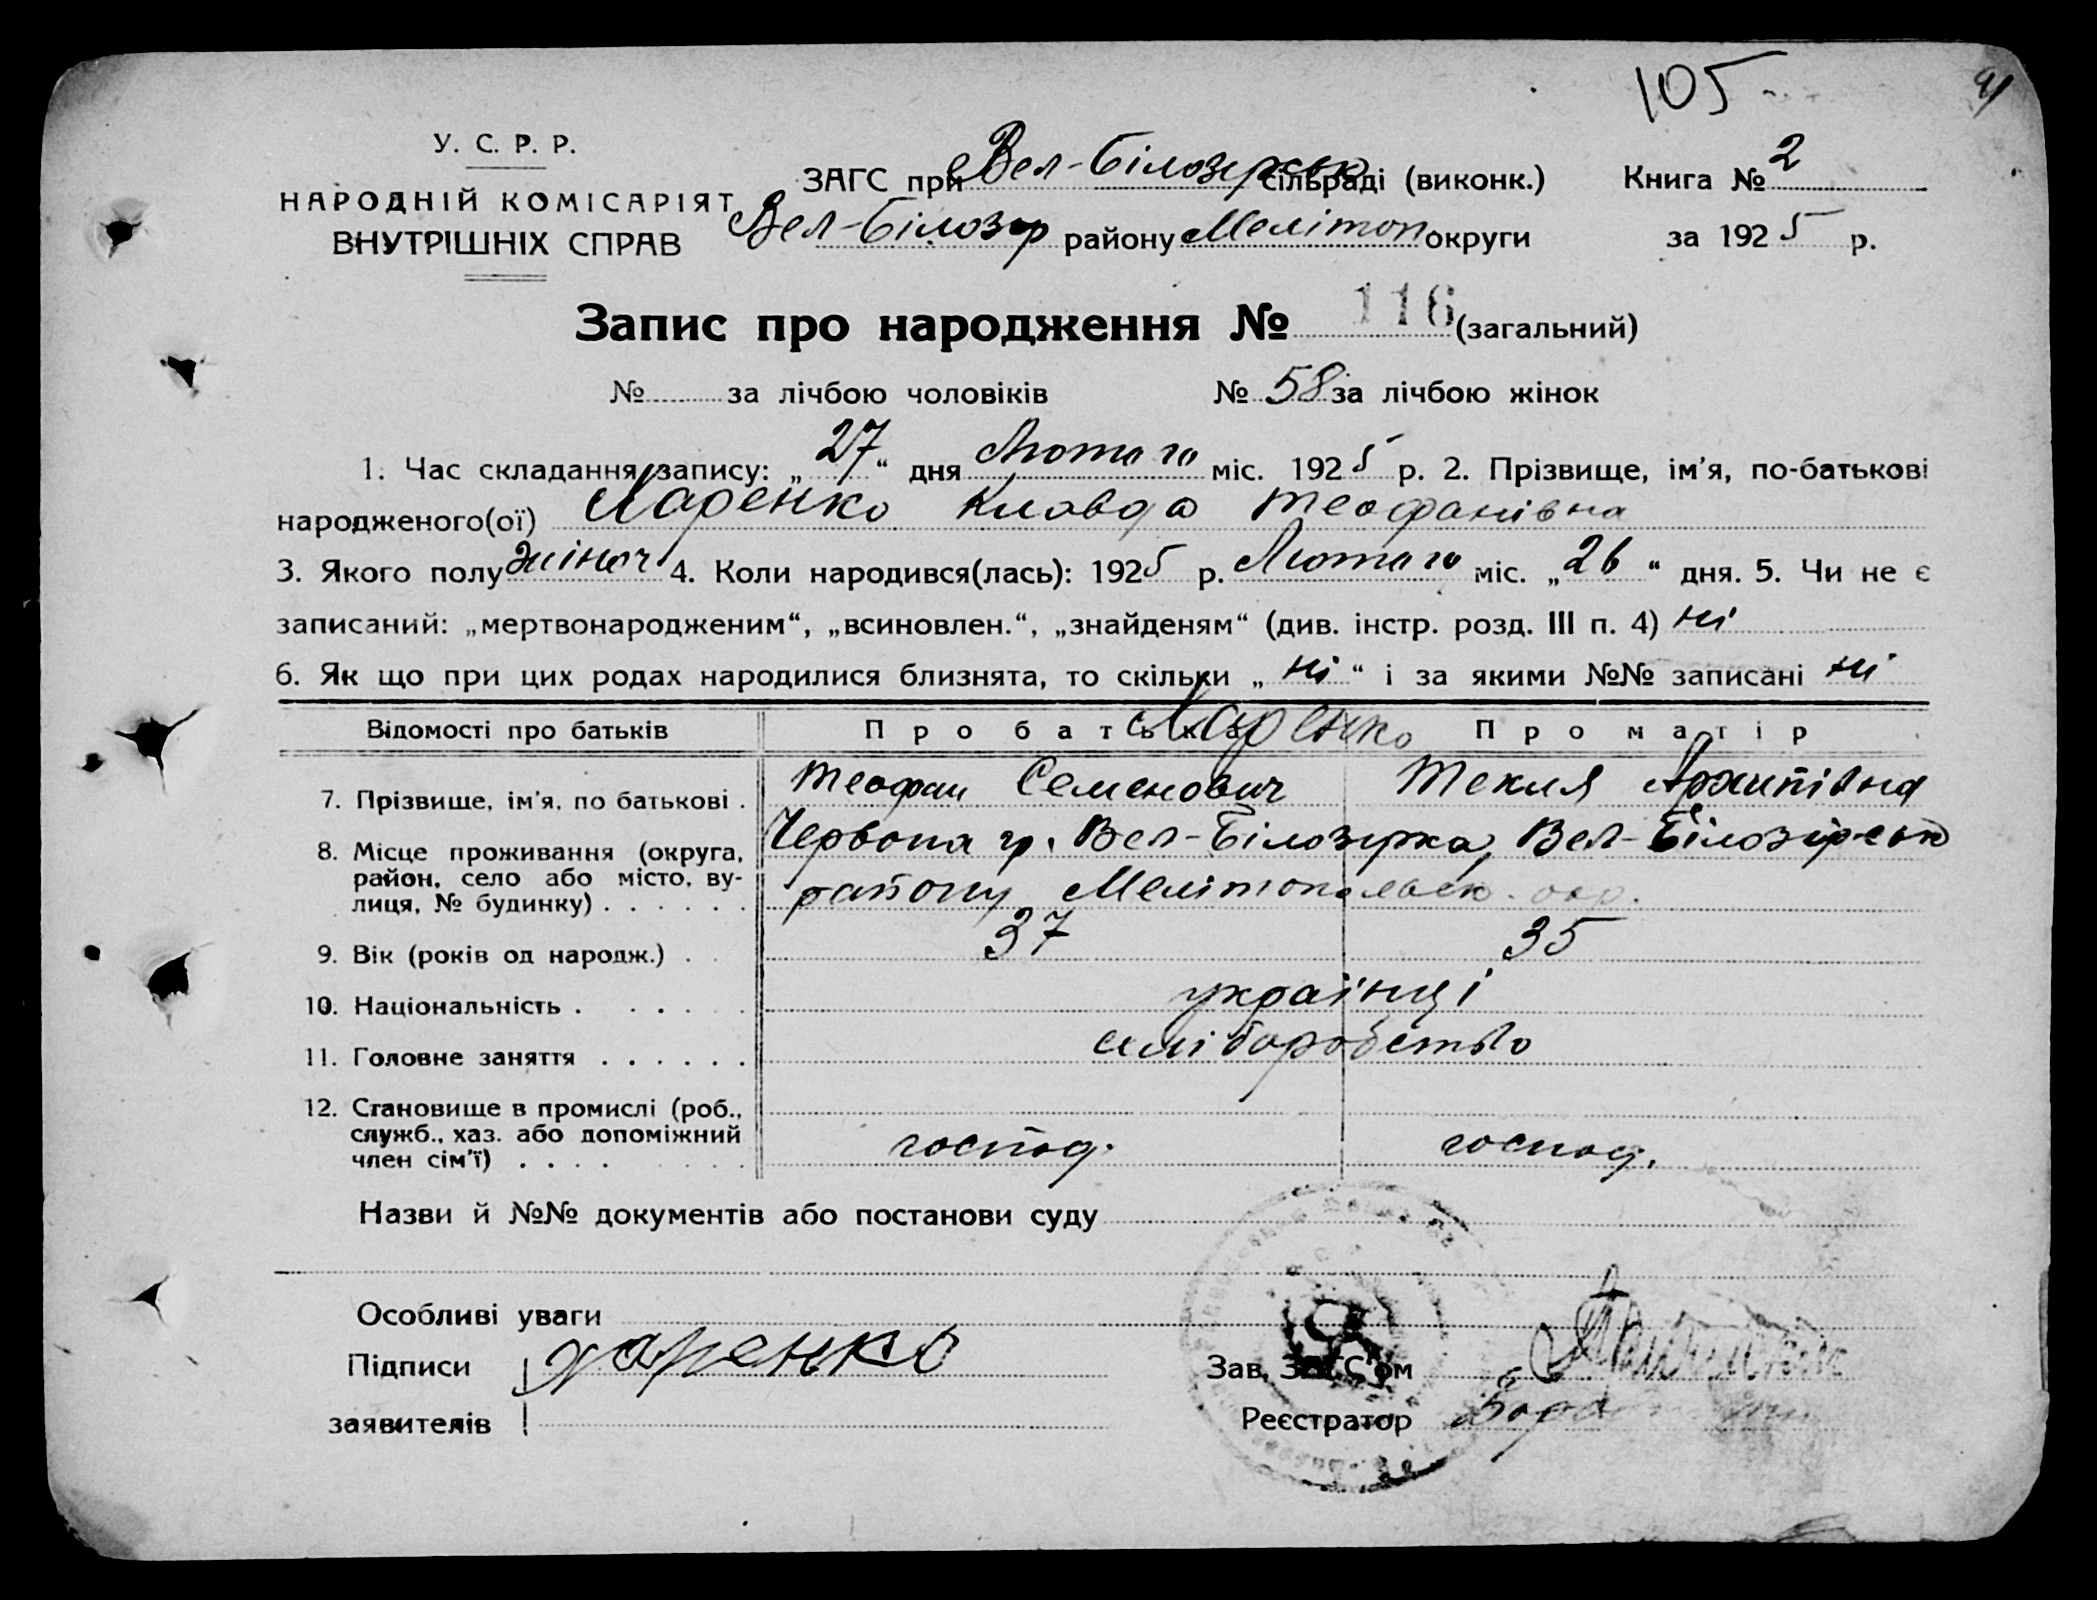 105
91
У. С. Р. Р.
НАРОДНІЙ КОМІСАРІЯТ
ВНУТРІШНІХ СПРАВ
ЗАГС при Вел-Білозірськ сільраді (виконк.)
Книга № 2
Вел-Білозір району Мелітоп. округи
за 1925 р.
Запис про народження № 116 (загальний)
№ за лічбою чоловіків № 58 за лічбою жінок
1. Час складання запису: „27“ дня Лютого міс. 1925 р. 2. Прізвище, ім'я, по-батькові
народженого(ої) Ларенко Клавда Теофанівна
3. Якого полу жіноч 4. Коли народився(лась): 1925 р. Лютого міс. „26“ дня. 5. Чи не є
записаний: „мертвонародженим“, „всиновлен.“, „знайденям“ (див. інстр. розд. III п. 4) ні
6. Як що при цих родах народилися близнята, то скільки „ні“ і за якими №№ записані ні
Відомості про батьків Про батька Про матір
Ларенко
7. Прізвище, ім'я, по батькові . Теофан Семенович Текля Архипівна
8. Місце проживання (округа, Червона гр. Вел-Білозірка, Вел-Білозірськ
район, село або місто, ву- району Мелітопольськ. окр.
лиця, № будинку) . . . . . .
9. Вік (років од народж.) . . 37 35
10. Національність . . . . . українці
11. Головне заняття . . . . . . хліборобство
12. Становище в промислі (роб.,
служб., хаз. або допоміжний господ. господ.
член сім'ї) . . . .
Назви й №№ документів або постанови суду
Особливі уваги
Підписи Ларенко
заявителів
Зав. ЗАГС'ом
Реєстратор